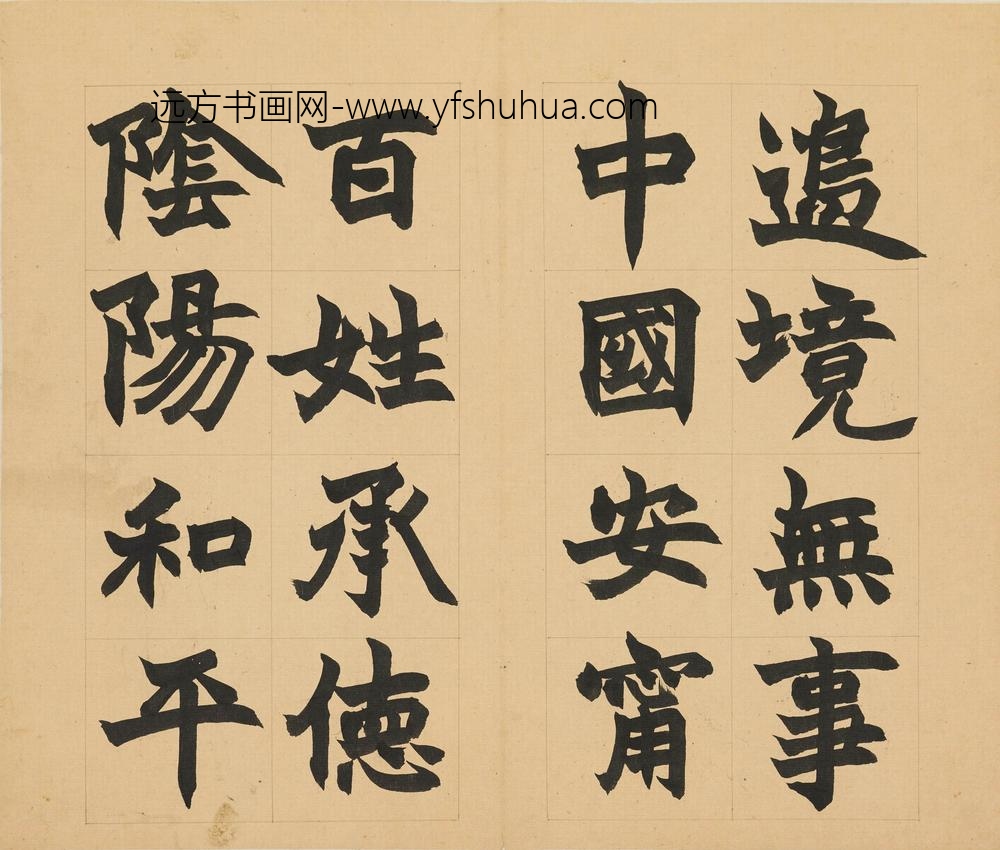 远方书画网-www.yfshuhua.com
邉境無事
中國安甯
百姓承德
陰陽和平